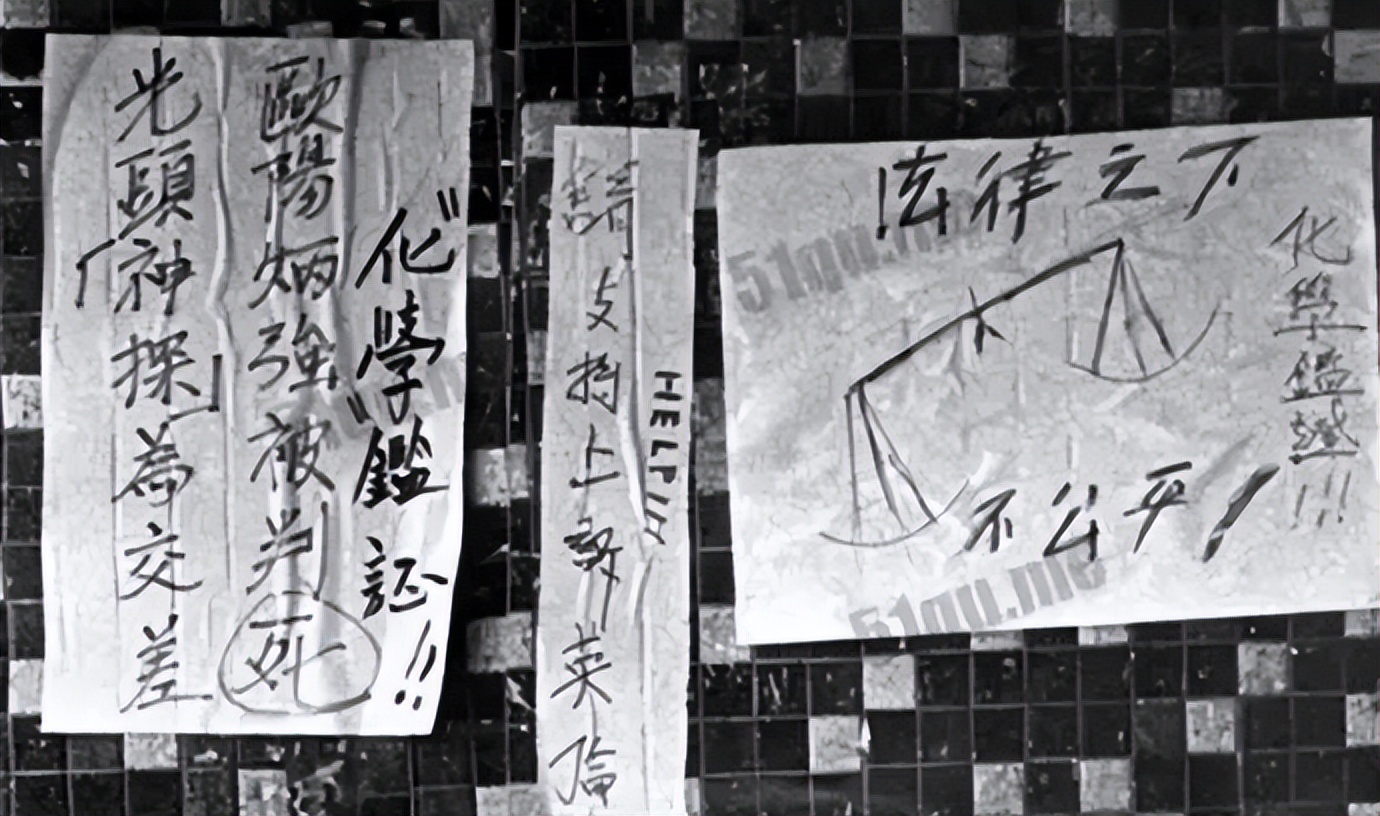 "化學"鑑証!!
歐陽炳強被判死
光頭「神探」為交差
HELP
請支持上訴英倫
法律之下
不公平!
化學鑑!!!
51qu.me
51qu.me